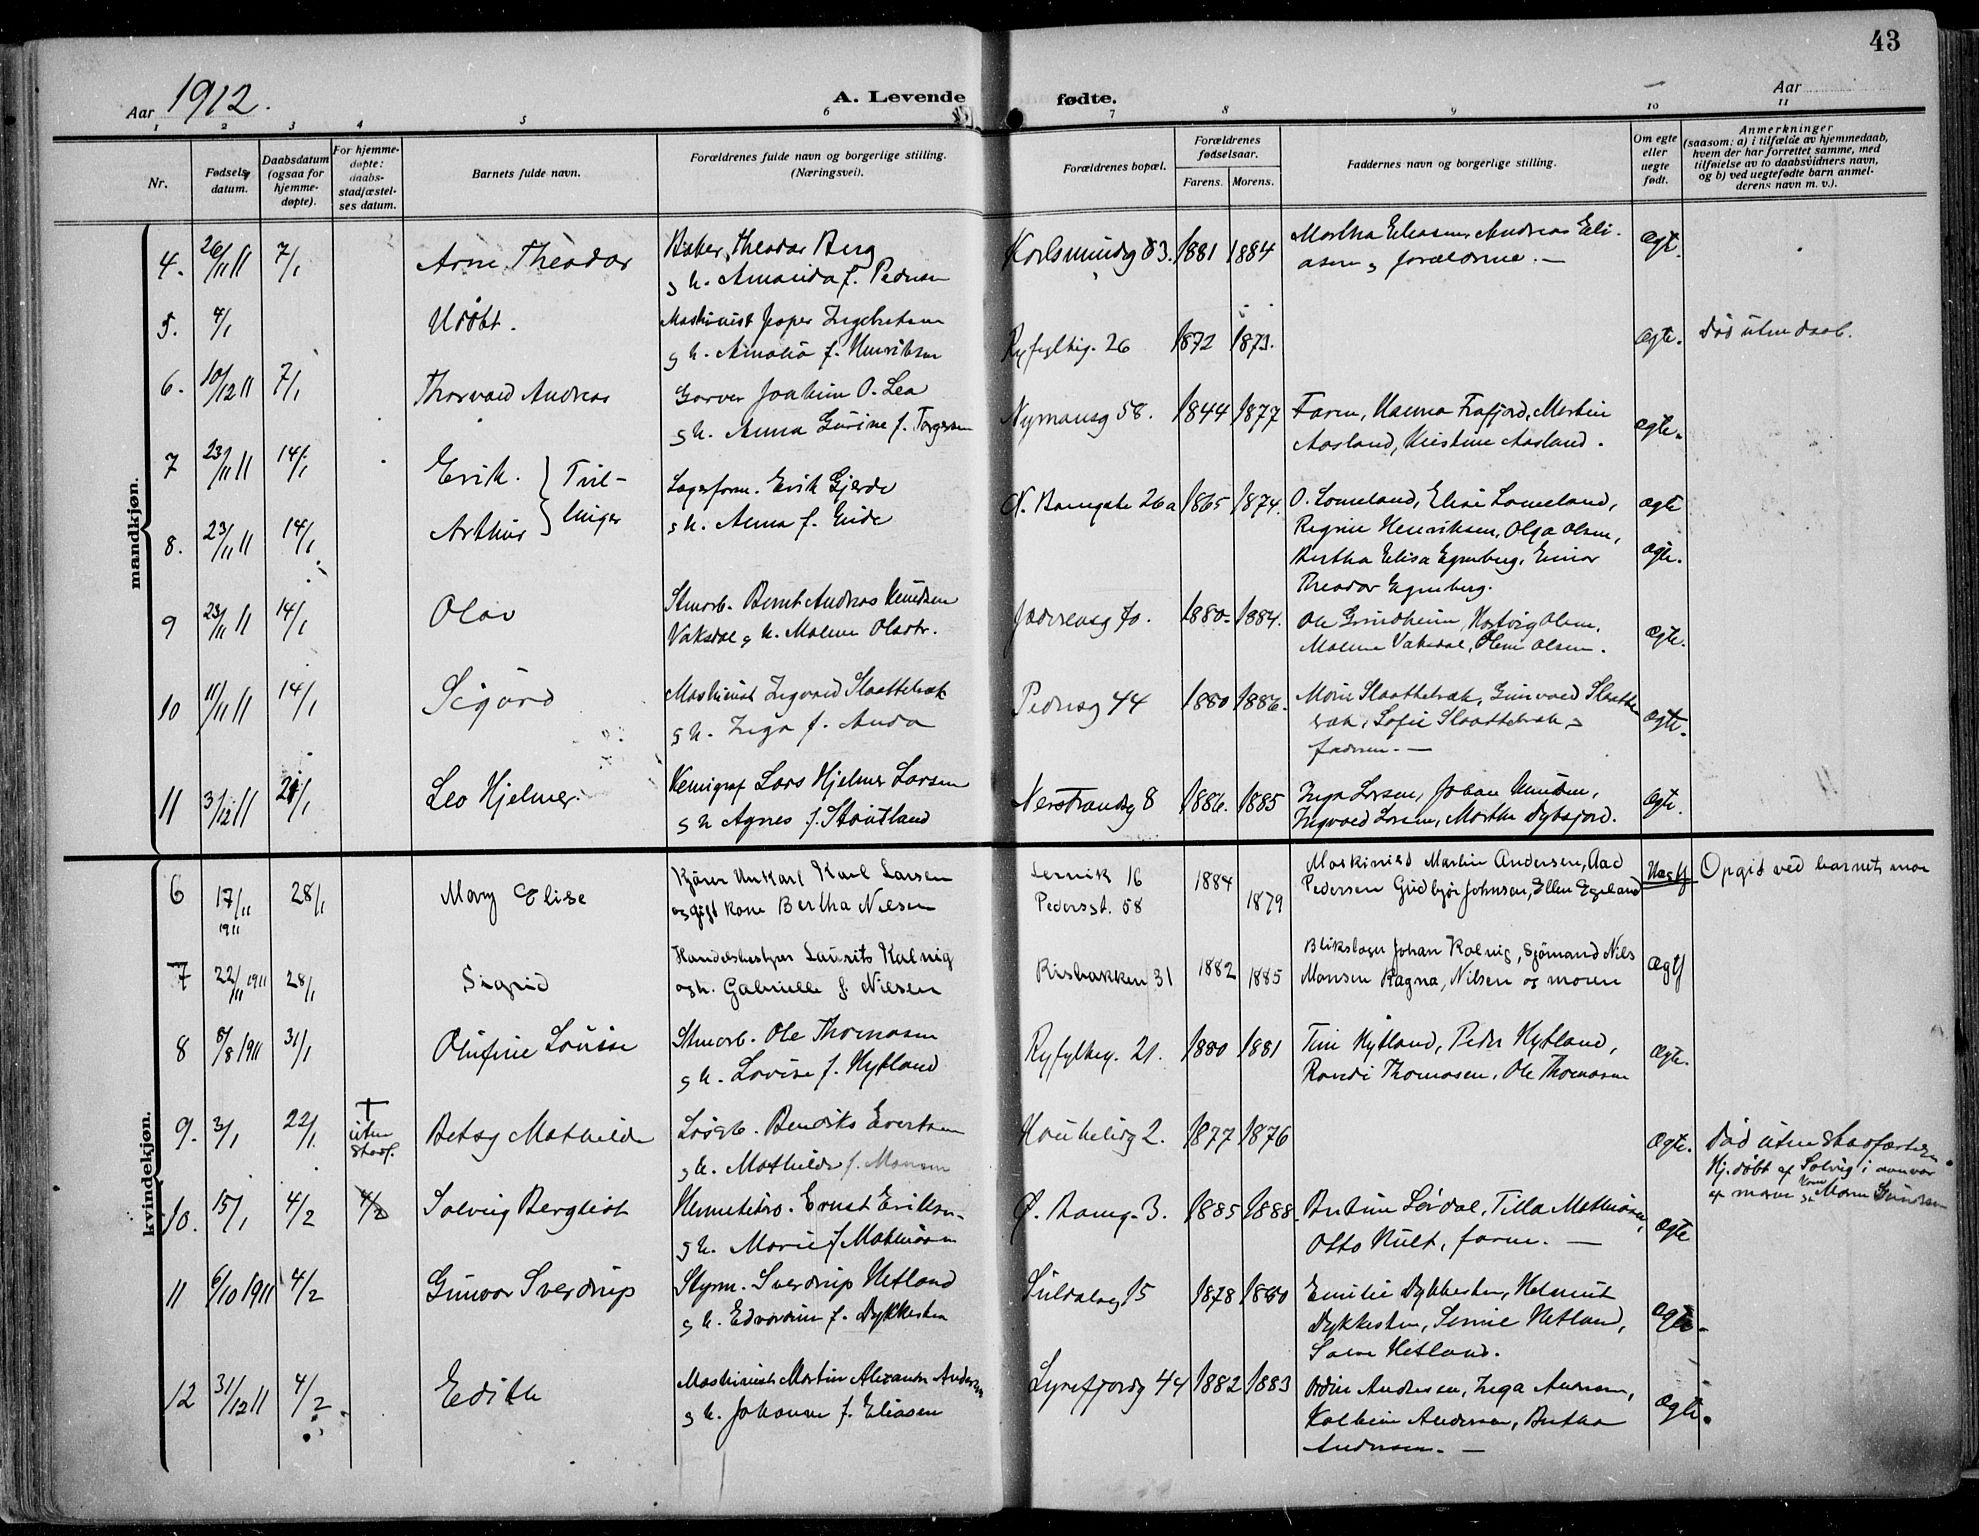 43
Aar 1912.
A. Levende fødte.
Aar
1 2 3 4 5 6 7 8 9 10 11
Nr.
Fødsels datum.
Daabsdatum (ogsaa for hjemme-døpte).
For hjemme-døpte: daabs-stadfæstel-ses datum.
Barnets fulde navn.
Forældrenes fulde navn og borgerlige stilling. (Næringsvei).
Forældrenes bopæl.
Forældrenes fødselsaar.
Farens. Morens.
Faddernes navn og borgerlige stilling.
Om egte eller uegte født.
Anmerkninger
(saasom: a) i tilfælde av hjemmedaab,
hvem der har forrettet samme, med
tilføielse av to daabsvidners navn,
og b) ved uegtefødte barn anmel-
derens navn m. v.).
mandkjøn.
4. 26/11 11 7/1 Arne Theodor
Baker Theodor Berg
g h. Amanda f. Pedersen
Karlsmindeg 83. 1881 1884
Martha Eliasen, Andreas Eli-
asen g forældrene. —
Ægt.
5. 4/1 Udøbt.
Maskinist Jesper Ingebretsen
g h. Amalia f. Henriksen
Ryfylkeg. 26 1872 1873.
ægte.
Død uten daab.
6. 10/12 11 7/1 Thorvald Andreas
Garver Joakim O. Lea
g h. Anna Gurine f. Torgersen
Nymansg 58. 1844 1877
Faren, Hanna Frafjord, Martin
Aasland, Kristine Aasland.
ægte.
7 23/11 11 14/1 Erik. } Tvil-
Lagerform. Erik Gjerde
8. 23/11 11 14/1 Arthur } linger
g h. Anna f. Eide
N. Banegate 26a 1865 1874.
O. Lomeland, Elise Lomeland,
Regine Henriksen, Olga Olsen,
Bertha Elisa Egenberg, Einar
Theodor Egenberg.
ægte
ægte.
9 23/11 11 14/1 Olav
Stuarb. Bernt Andreas Knudsen
Vaksdal g h. Malene Olsdtr.
Jæderensg 70. 1880- 1884.
Ole Grindheim, Hartvig Olsen,
Malene Vaksdal, Oleni Olsen.
Ægte.
10 11/11 11 14/1 Sigurd
Maskinist Ingvald Slaattebræk
g h. Inga f. Anda
Pedersg 44 1880 1886.
Marie Slaattebræk, Gunvald Slaatte-
bræk, Sofie Slaattebræk g
faderen. —
ægte.
11 3/12 11 21/1 Leo Hjelmer.
Kemigraf Lars Hjelmer Larsen
g h Agnes f. Stoutland
Nerstrandsg 8 1886. 1885
Inga Larsen, Johan Knudsen,
Ingvald Larsen, Marthe Dybsjord.
Ægte.
kvindekjøn.
6 17/11 1911 28/1 Mary Elise
Kjører Unkarl Karl Larsen
og gift kone Bertha Nilsen
Lervik 16
Pedersgt. 58
1884 1879
Maskinist Martin Andersen, Aad
Pedersen Gudbjør Johnsen, Ellen Egeland
Uægt
Opgit ved barnets mor
7 22/11 1911 28/1 Sigrid
Handelsbestyrer Laurits Kalvig
og h. Gabrielle f. Nilsen
Risbakken 31 1882 1885
Blikslager Johan Kalvig, Sjømand Nils
Monsen Ragna, Nilsen og moren
Ægt
8 8/8 1911 31/1 Olufine Lovise
Stuarb. Ole Thomasen
g h. Lovise f. Hytland
Ryfylkeg. 21. 1880 1881
Tini Hytland, Peder Hytland,
Randi Thomasen, Ole Thomasen
Ægte.
9. 3/1 22/1 † uten stadf. Betsy Mathilde
Løsarb. Bendiks Evertsen
g h. Mathilde f. Monsen
Haukeligg 2. 1877 1876
Ægte.
Død uten stadfæstelse.
10. 15/1 4/2 4/2 Solveig Bergliot
Hermetikarb. Ernst Eriksen
g h. Marie f Mathiasen
Ø. Baneg. 3. 1885 1888.
Bertine Lørdal, Tilla Mathiasen,
Otto Hult, faren. —
ægte
Hj.døbt af Solveig i nærvær
af moren g Kone Maren Gundersen
11 6/10 1911 4/2 Gunvor Sverdrup
Styrm. Sverdrup Hetland
g h. Edvardine f. Dykkesten
Suldalsg 15 1878 1880
Emilie Dykkesten, Helmuth
Dykkesten, Serine Hetland,
Hetland.
ægte.
12 31/12 11 4/2 Edith
Maskinist Martin Alexander Andersen
g h. Johanne f. Eliasen
Lysefjordg 44 1882 1883
Ordin Andersen, Inga Andersen,
Kolbein Andersen, Bertha
Andersen. —
Ægte.